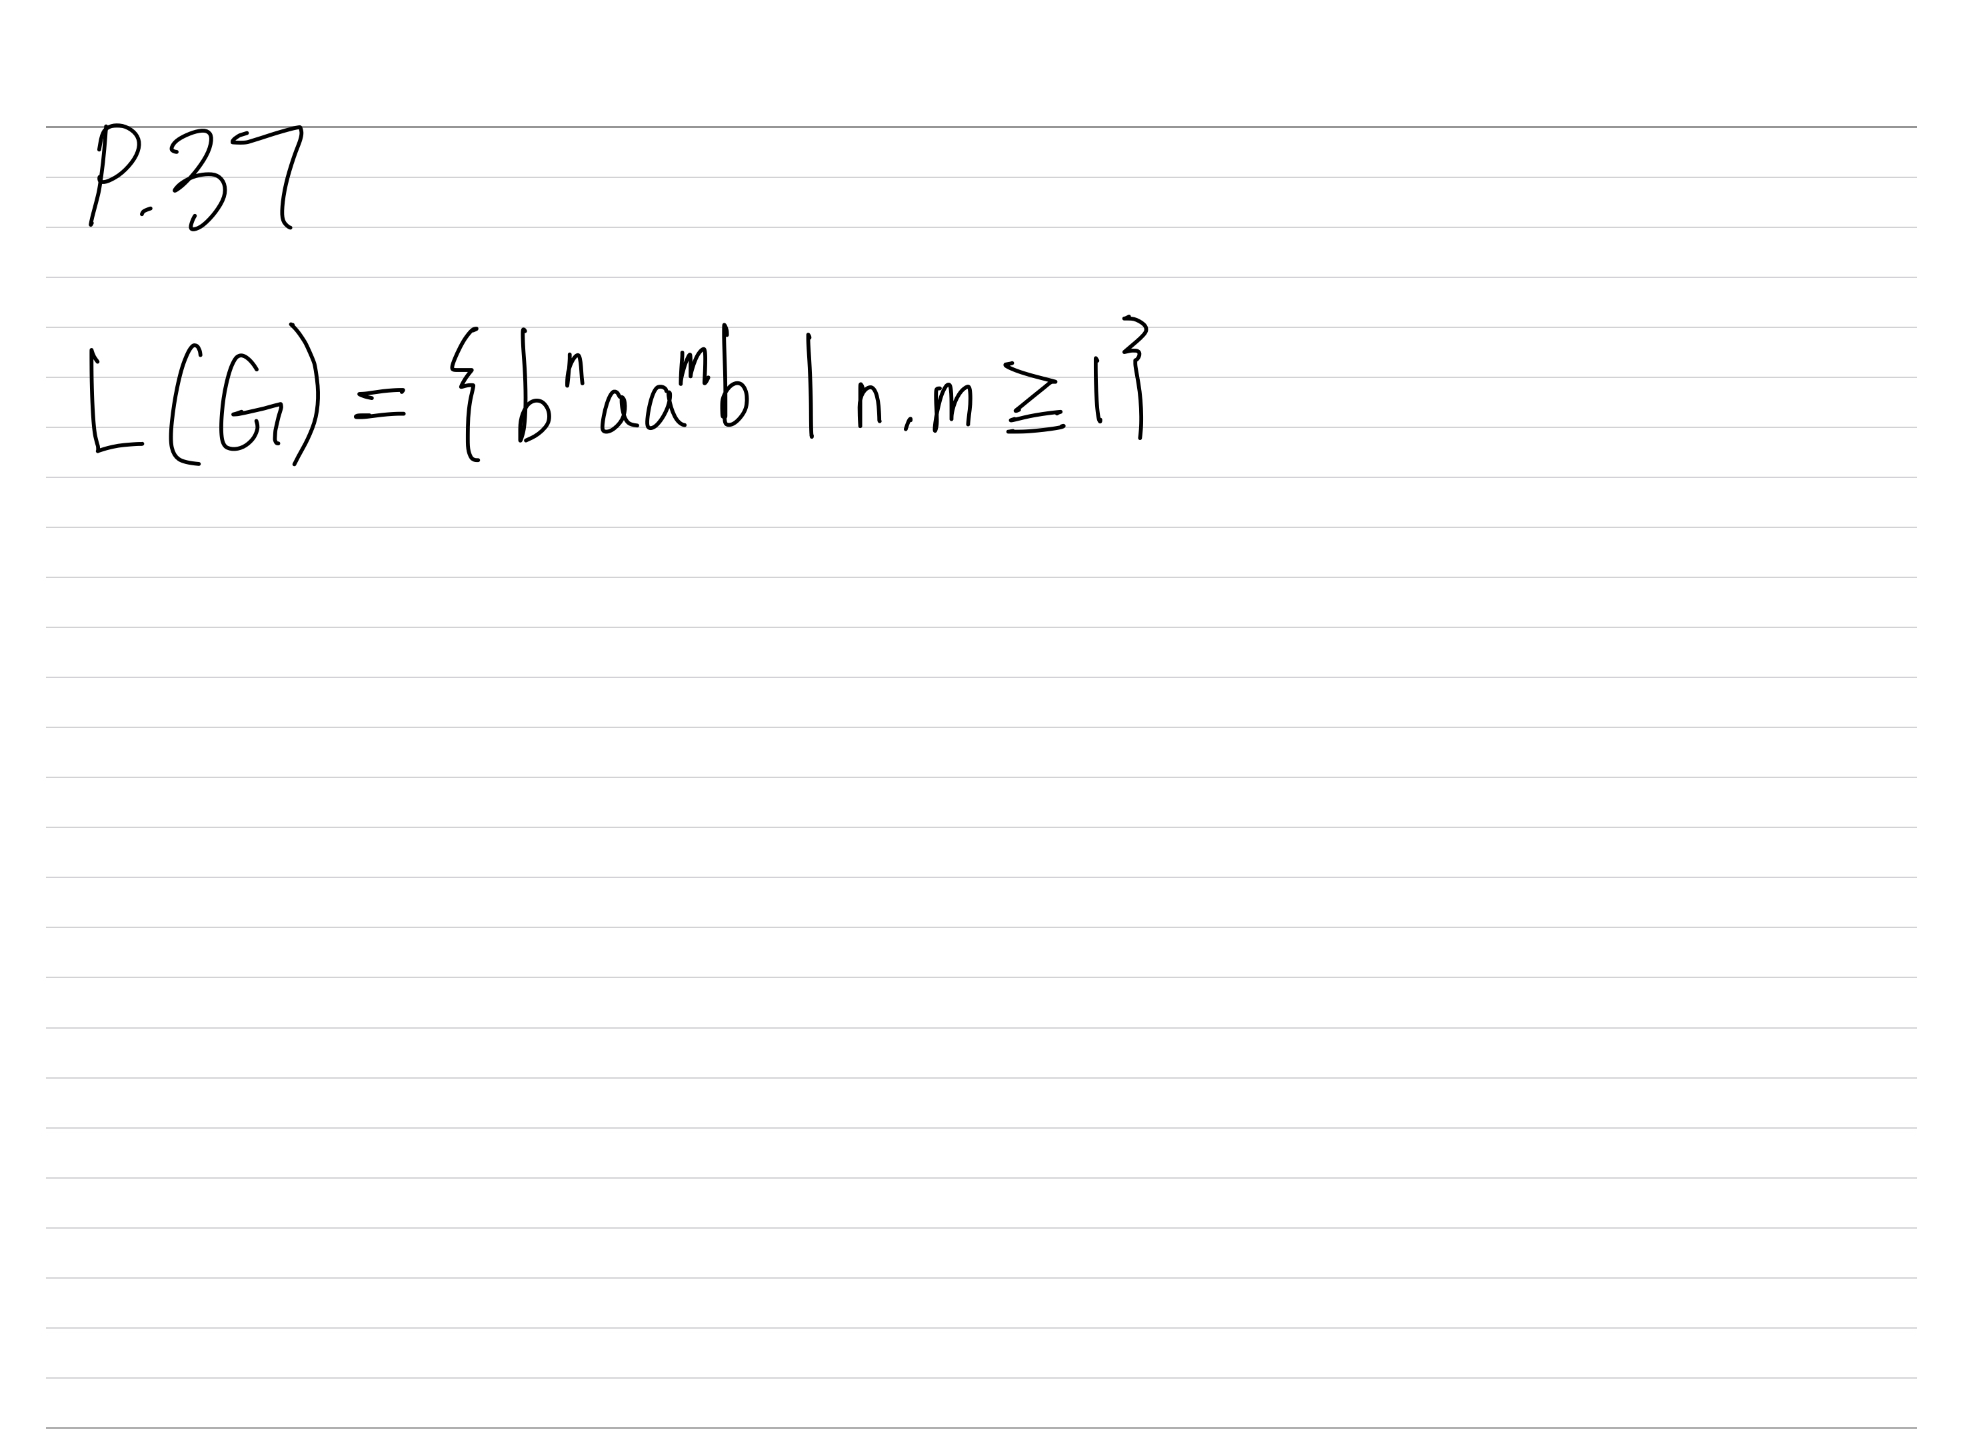 P.37
L(G) = { bⁿaaᵐb | n.m ≥ 1}